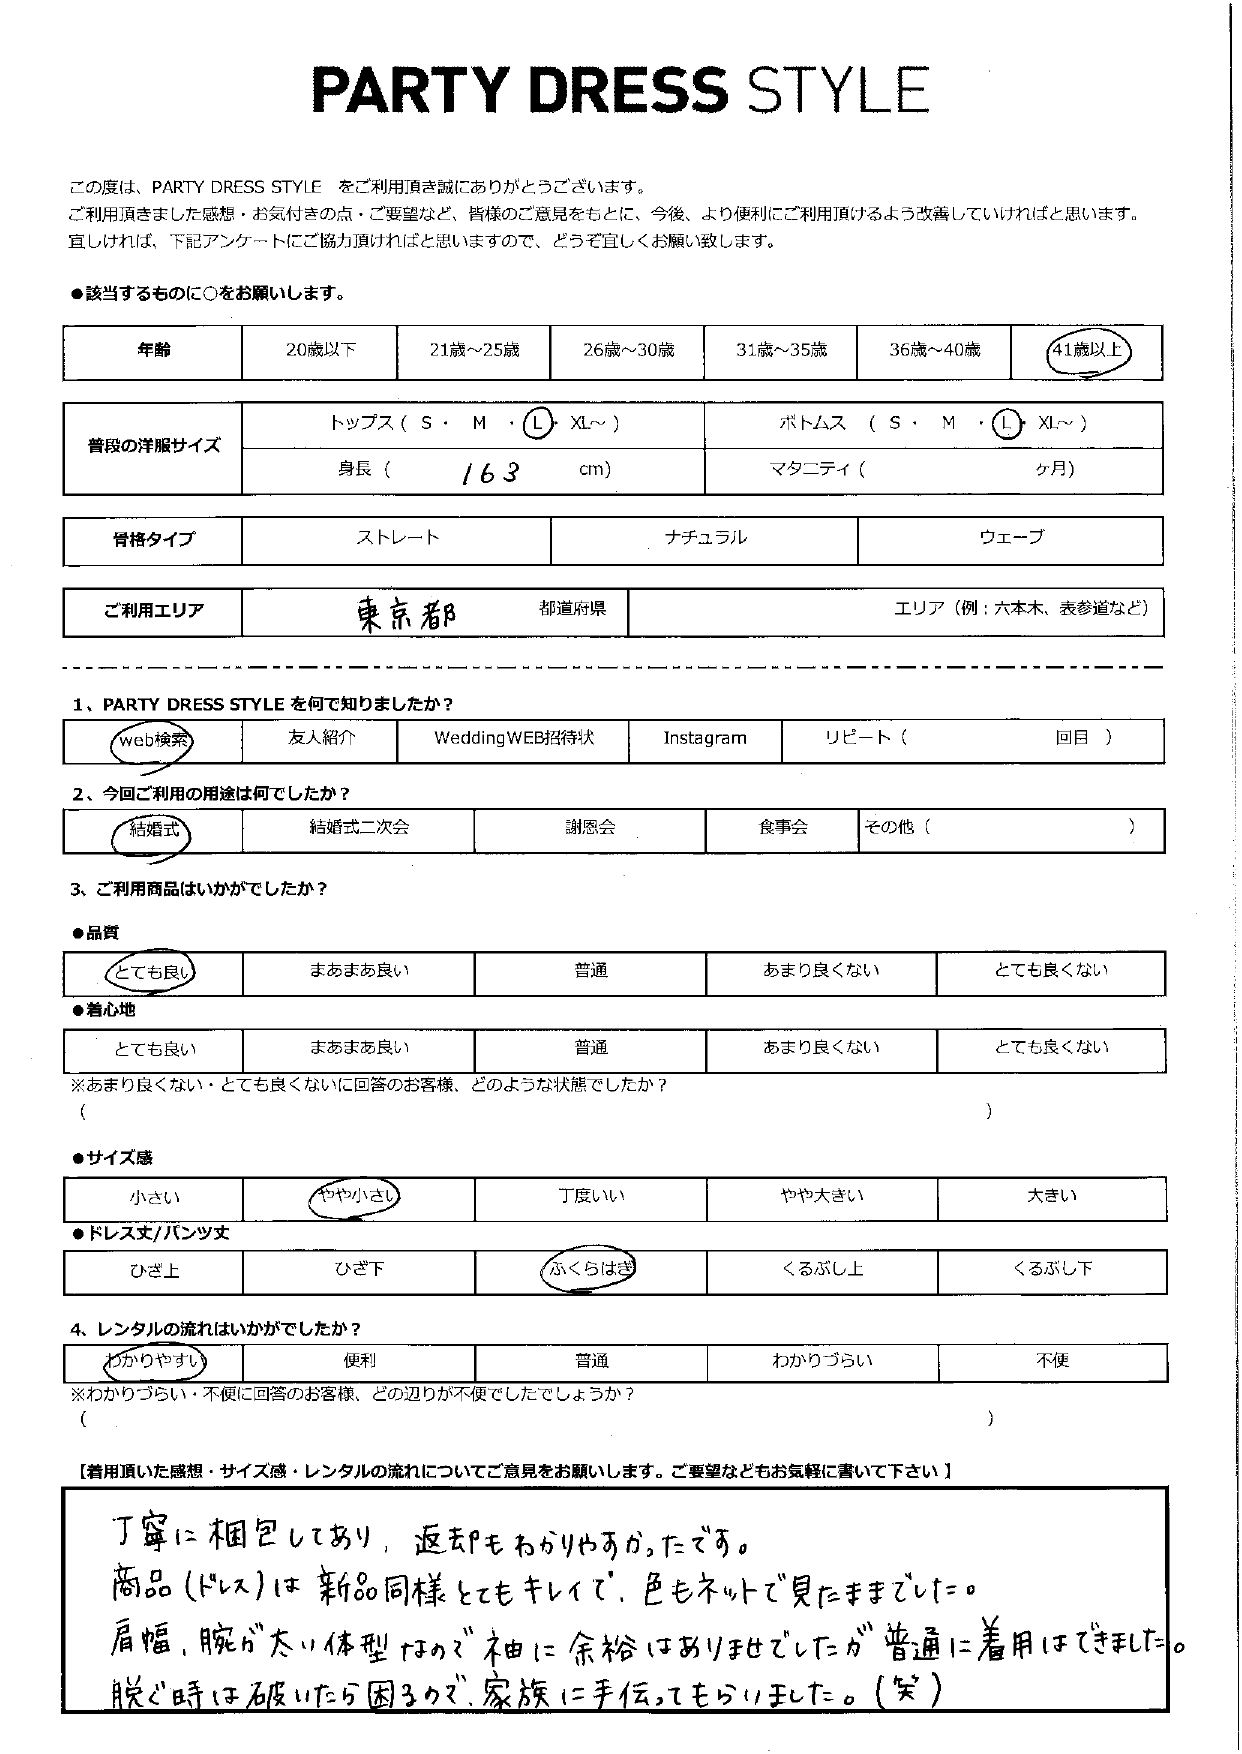 PARTY DRESS STYLE
この度は、PARTY DRESS STYLE をご利用頂き誠にありがとうございます。
ご利用頂きました感想・お気付きの点・ご要望など、皆様のご意見をもとに、今後、より便利にご利用頂けるよう改善していければと思います。
宜しければ、下記アンケートにご協力頂ければと思いますので、どうぞ宜しくお願い致します。
●該当するものに○をお願いします。
年齢 20歳以下 21歳～25歳 26歳～30歳 31歳～35歳 36歳～40歳 41歳以上
普段の洋服サイズ
トップス ( S ・ M ・ L ・ XL～ ) ボトムス ( S ・ M ・ L ・ XL～ )
身長 ( 163 cm) マタニティ ( ヶ月)
骨格タイプ ストレート ナチュラル ウェーブ
ご利用エリア 東京都 都道府県 エリア（例：六本木、表参道など）
1、PARTY DRESS STYLE を何で知りましたか？
web検索 友人紹介 WeddingWEB招待状 Instagram リピート（ 回目 ）
2、今回ご利用の用途は何でしたか？
結婚式 結婚式二次会 謝恩会 食事会 その他（ ）
3、ご利用商品はいかがでしたか？
●品質
とても良い まあまあ良い 普通 あまり良くない とても良くない
●着心地
とても良い まあまあ良い 普通 あまり良くない とても良くない
※あまり良くない・とても良くないに回答のお客様、どのような状態でしたか？
( )
●サイズ感
小さい やや小さい 丁度いい やや大きい 大きい
●ドレス丈/パンツ丈
ひざ上 ひざ下 ふくらはぎ くるぶし上 くるぶし下
4、レンタルの流れはいかがでしたか？
わかりやすい 便利 普通 わかりづらい 不便
※わかりづらい・不便に回答のお客様、どの辺りが不便でしたでしょうか？
( )
【着用頂いた感想・サイズ感・レンタルの流れについてご意見をお願いします。ご要望などもお気軽に書いて下さい】
丁寧に梱包してあり、返却もわかりやすかったです。
商品(ドレス)は新品同様とてもキレイで、色もネットで見たままでした。
肩幅、腕が太い体型なので袖に余裕はありませでしたが普通に着用はできました。
脱ぐ時は破いたら困るので、家族に手伝ってもらいました。(笑)